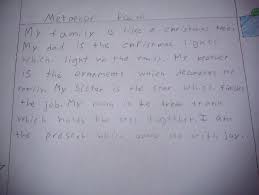 Metaphor Poem
My family is like a christmas tree.
My dad is the christmas lights
which light up the family. My brother
is the ornaments which decorates the
family. My sister is the star which finishes
the job. My mom is the tree trunk
which holds the tree together. I am
the present which come with joy.